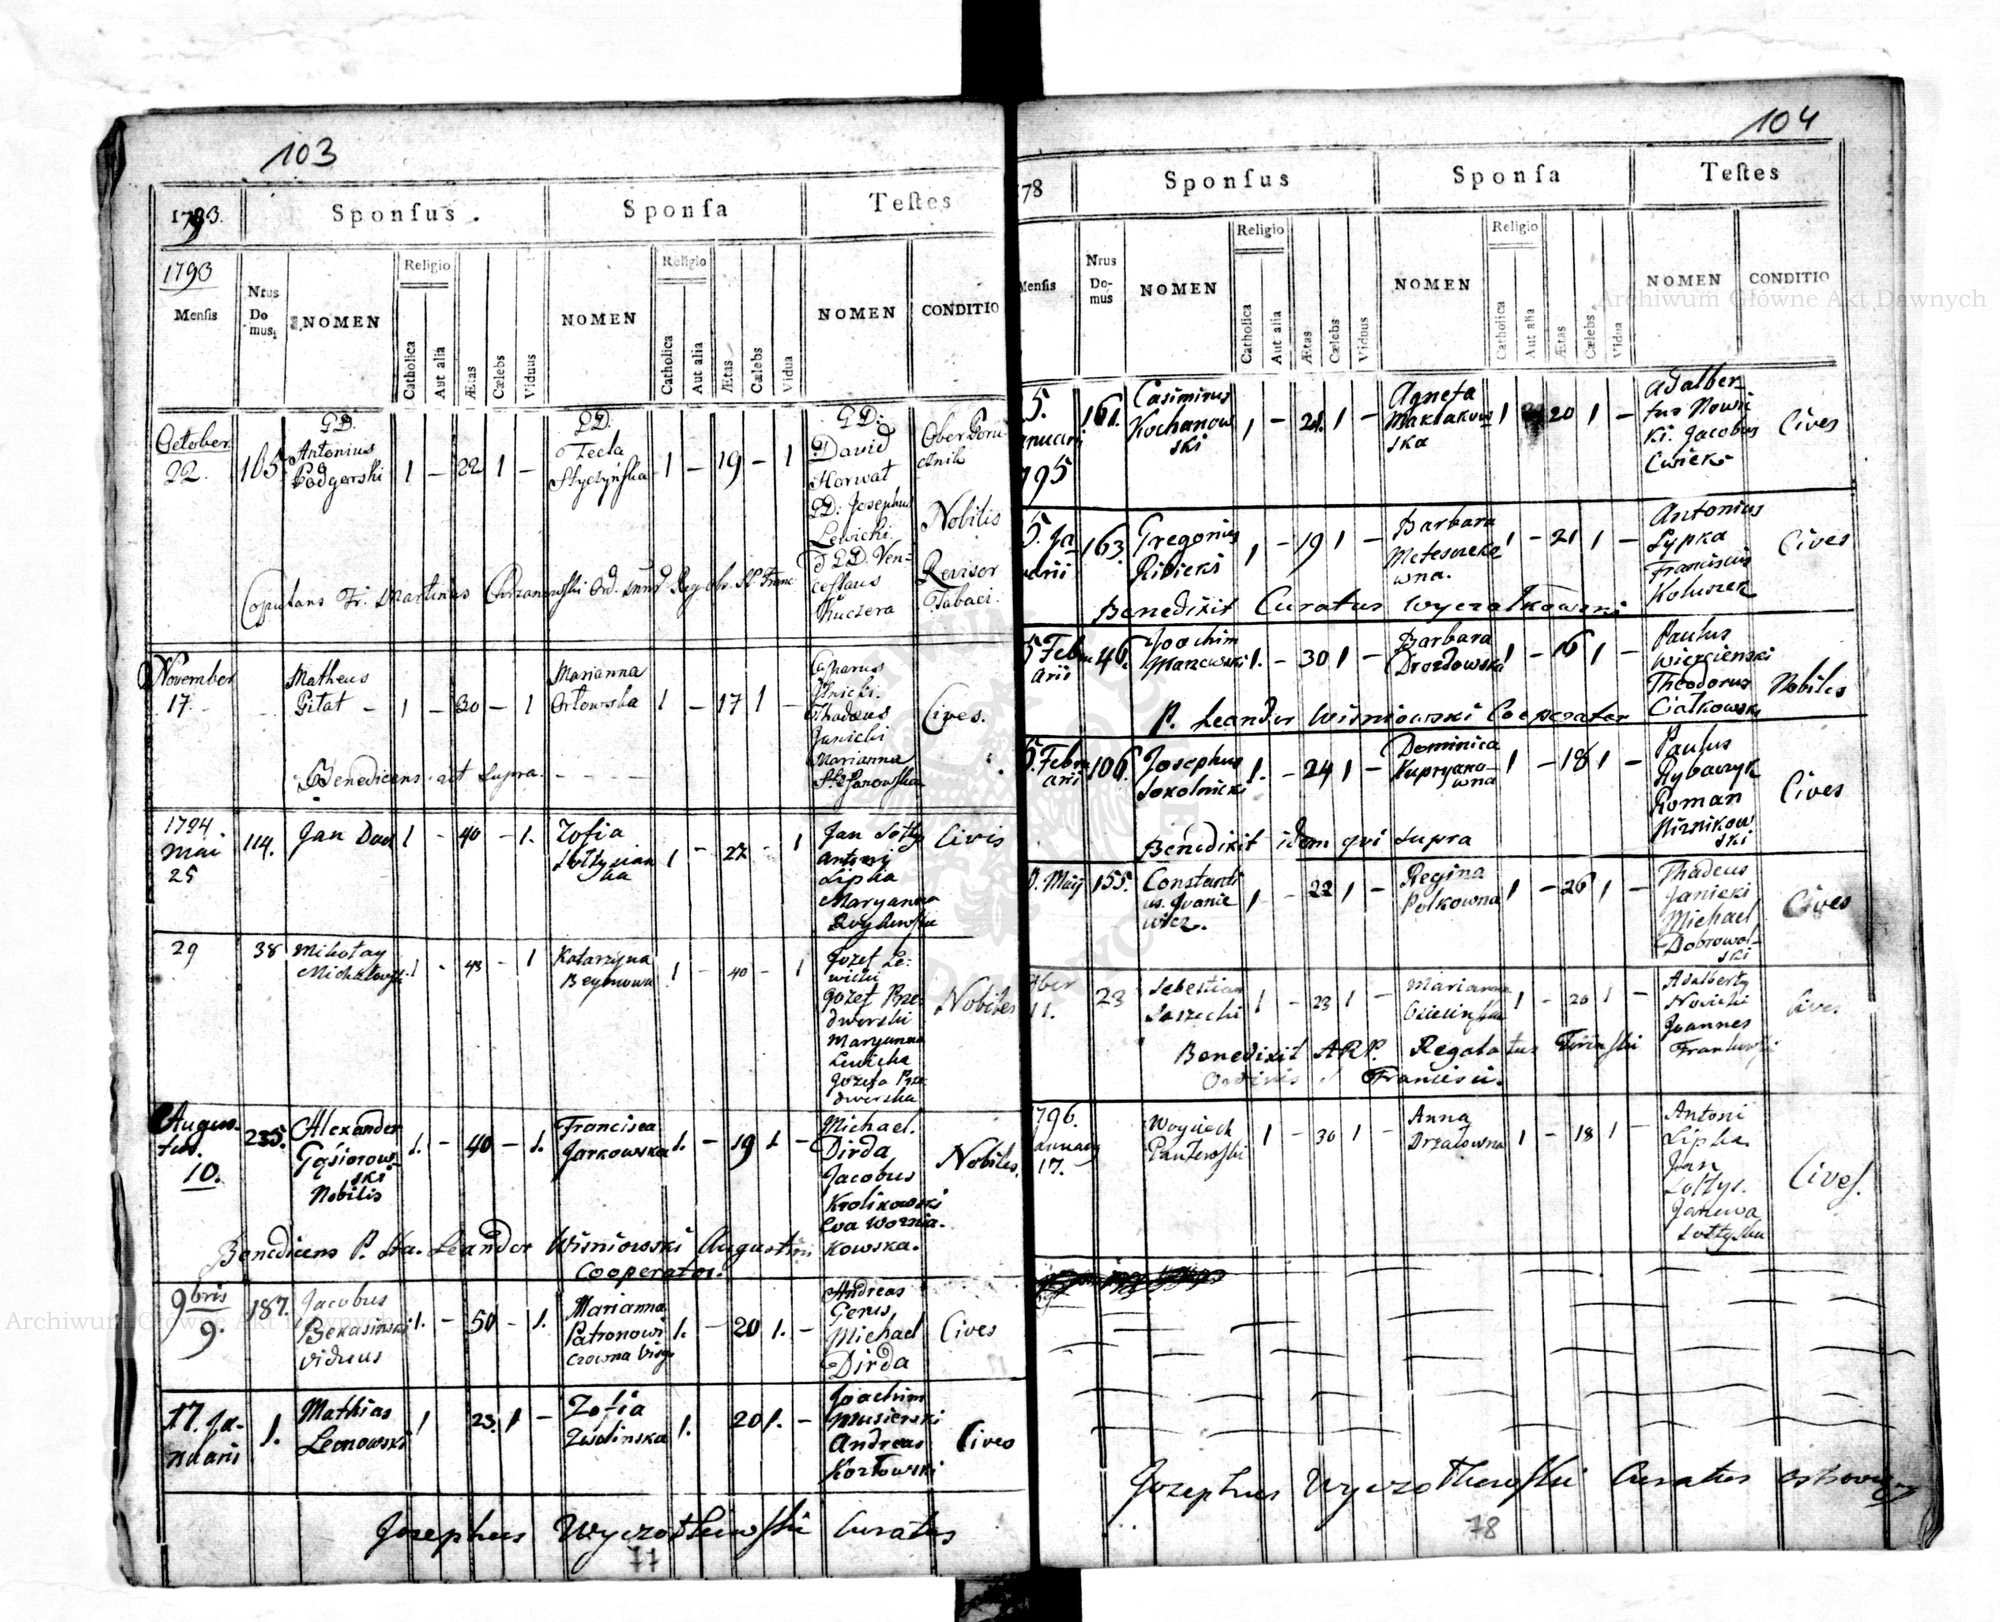 103
1793.
Sponſus.
Sponſa
Teſtes
1793
Menſis
Nrus Domus.
NOMEN
Religio
Catholica
Aut alia
Ætas
Cælebs
Viduus
NOMEN
Religio
Catholica
Aut alia
Ætas
Cælebs
Vidua
NOMEN
CONDITIO
October 22.
165
G D. Antonius Podgorski
1 – 22 1 –
G D. Tecla Styczyńska
1 – 19 – 1
G D: David Horwat
G D: Josephus Lewicki
G D. Venceslaus Kuczera
Nobilis
Revisor Tabaci.
Copulans Fr. Martinus
November 17.
Matheus Pitat –
1 – 30 – 1
Marianna Orłowska
1 – 17 1 –
Thadeus Janicki
Marianna
Cives.
Benedicens ut supra.
1794 Mai 25
114.
Jan Dad
1 – 40 – 1.
Zofia
1 – 27 – 1
Jan Sołtys
Antoni Lipka
Maryanna
Civis
29
38
Mikołay
1 - 43 - 1
Katarzyna
1 – 40 – 1
Jozef Lewicki
Jozef Przedwerski
Maryanna Lewicka
Jozefa Przedwerska
Nobiles
Augustus. 10.
235.
Alexander Gąsiorowski Nobilis
1. – 40 – 1.
Francisca Jarkowska
1. – 19 1. –
Michael. Dirda
Jacobus Krolikowski
Eva Worniakowska.
Nobiles.
Benedicens P. Leander Wisniowski Augustin
Cooperator.
9bris 9.
187.
Jacobus Bekasinski viduus
1. – 50 – 1.
Marianna Patronowiczowna Virgo
1. – 20 1. –
Andreas Gems
Michael Dirda
Cives
17. Januarii
1.
Mathias Lemowski
1 23. 1 –
Zofia Zwolinska
1. 20 1. –
Joachim Musierski
Andreas Kozłowski
Cives
Josephus Wyczołkowski Curatus
77
104
178
Sponſus
Sponſa
Teſtes
Menſis
Nrus Domus
NOMEN
Religio
Catholica
Aut alia
Ætas
Cælebs
Viduus
NOMEN
Religio
Catholica
Aut alia
Ætas
Cælebs
Vidua
NOMEN
CONDITIO
5. Januarii 1795
161.
Casimirus Kochanowski
1 – 21. 1 –
Agneta Maklakowska
1 20 1 –
Adalbertus Nowicki.
Jacobus Cwiek
Cives
5. Januarii
163
Gregorius Ribicki
1 – 19 1 –
Barbara
1 – 21 1 –
Antonius Lypka
Franciscus Koluszek
Cives
Benedixit Curatus Wyczolkowski
5 Februarii
46.
Joachim Marzewski
1. – 30 1 –
Barbara Drozdowska
1 – 16 1 –
Paulus Wiercienski
Theodorus Ciałkowski
Nobiles
P. Leander Wisniowski Cooperator
5. Februarii
106.
Josephus Sokolnicki
1. – 24 1 –
Dominica Kupryanowna
1 – 18 1 –
Paulus Rybaczyk
Roman
Cives
Benedixit idem qui supra
Maij
155.
Constantinus. Ivaniewicz.
1 – 22 1 –
Regina Polkowna
1 – 26 1 –
Thadeus Janicki
Michael Dobrowolski
Cives
11.
23
Sebestian
1 – 23 1 –
Marianna
1 – 20 1 –
Adalberty Nowicki
Joannes Frankowski
Cives
Benedixit ARP. Regalatus
Ordinis S Francisci.
1796. January 17.
Woyciech
1 – 30 1 –
Anna
1 – 18 1 –
Antoni Lipka
Jan Sołtys.
Janowa Sołtyska
Cives.
Jozephus Wyczołkowski Curatus
78
Archiwum Główne Akt Dawnych
Archiwum Główne Akt Dawnych